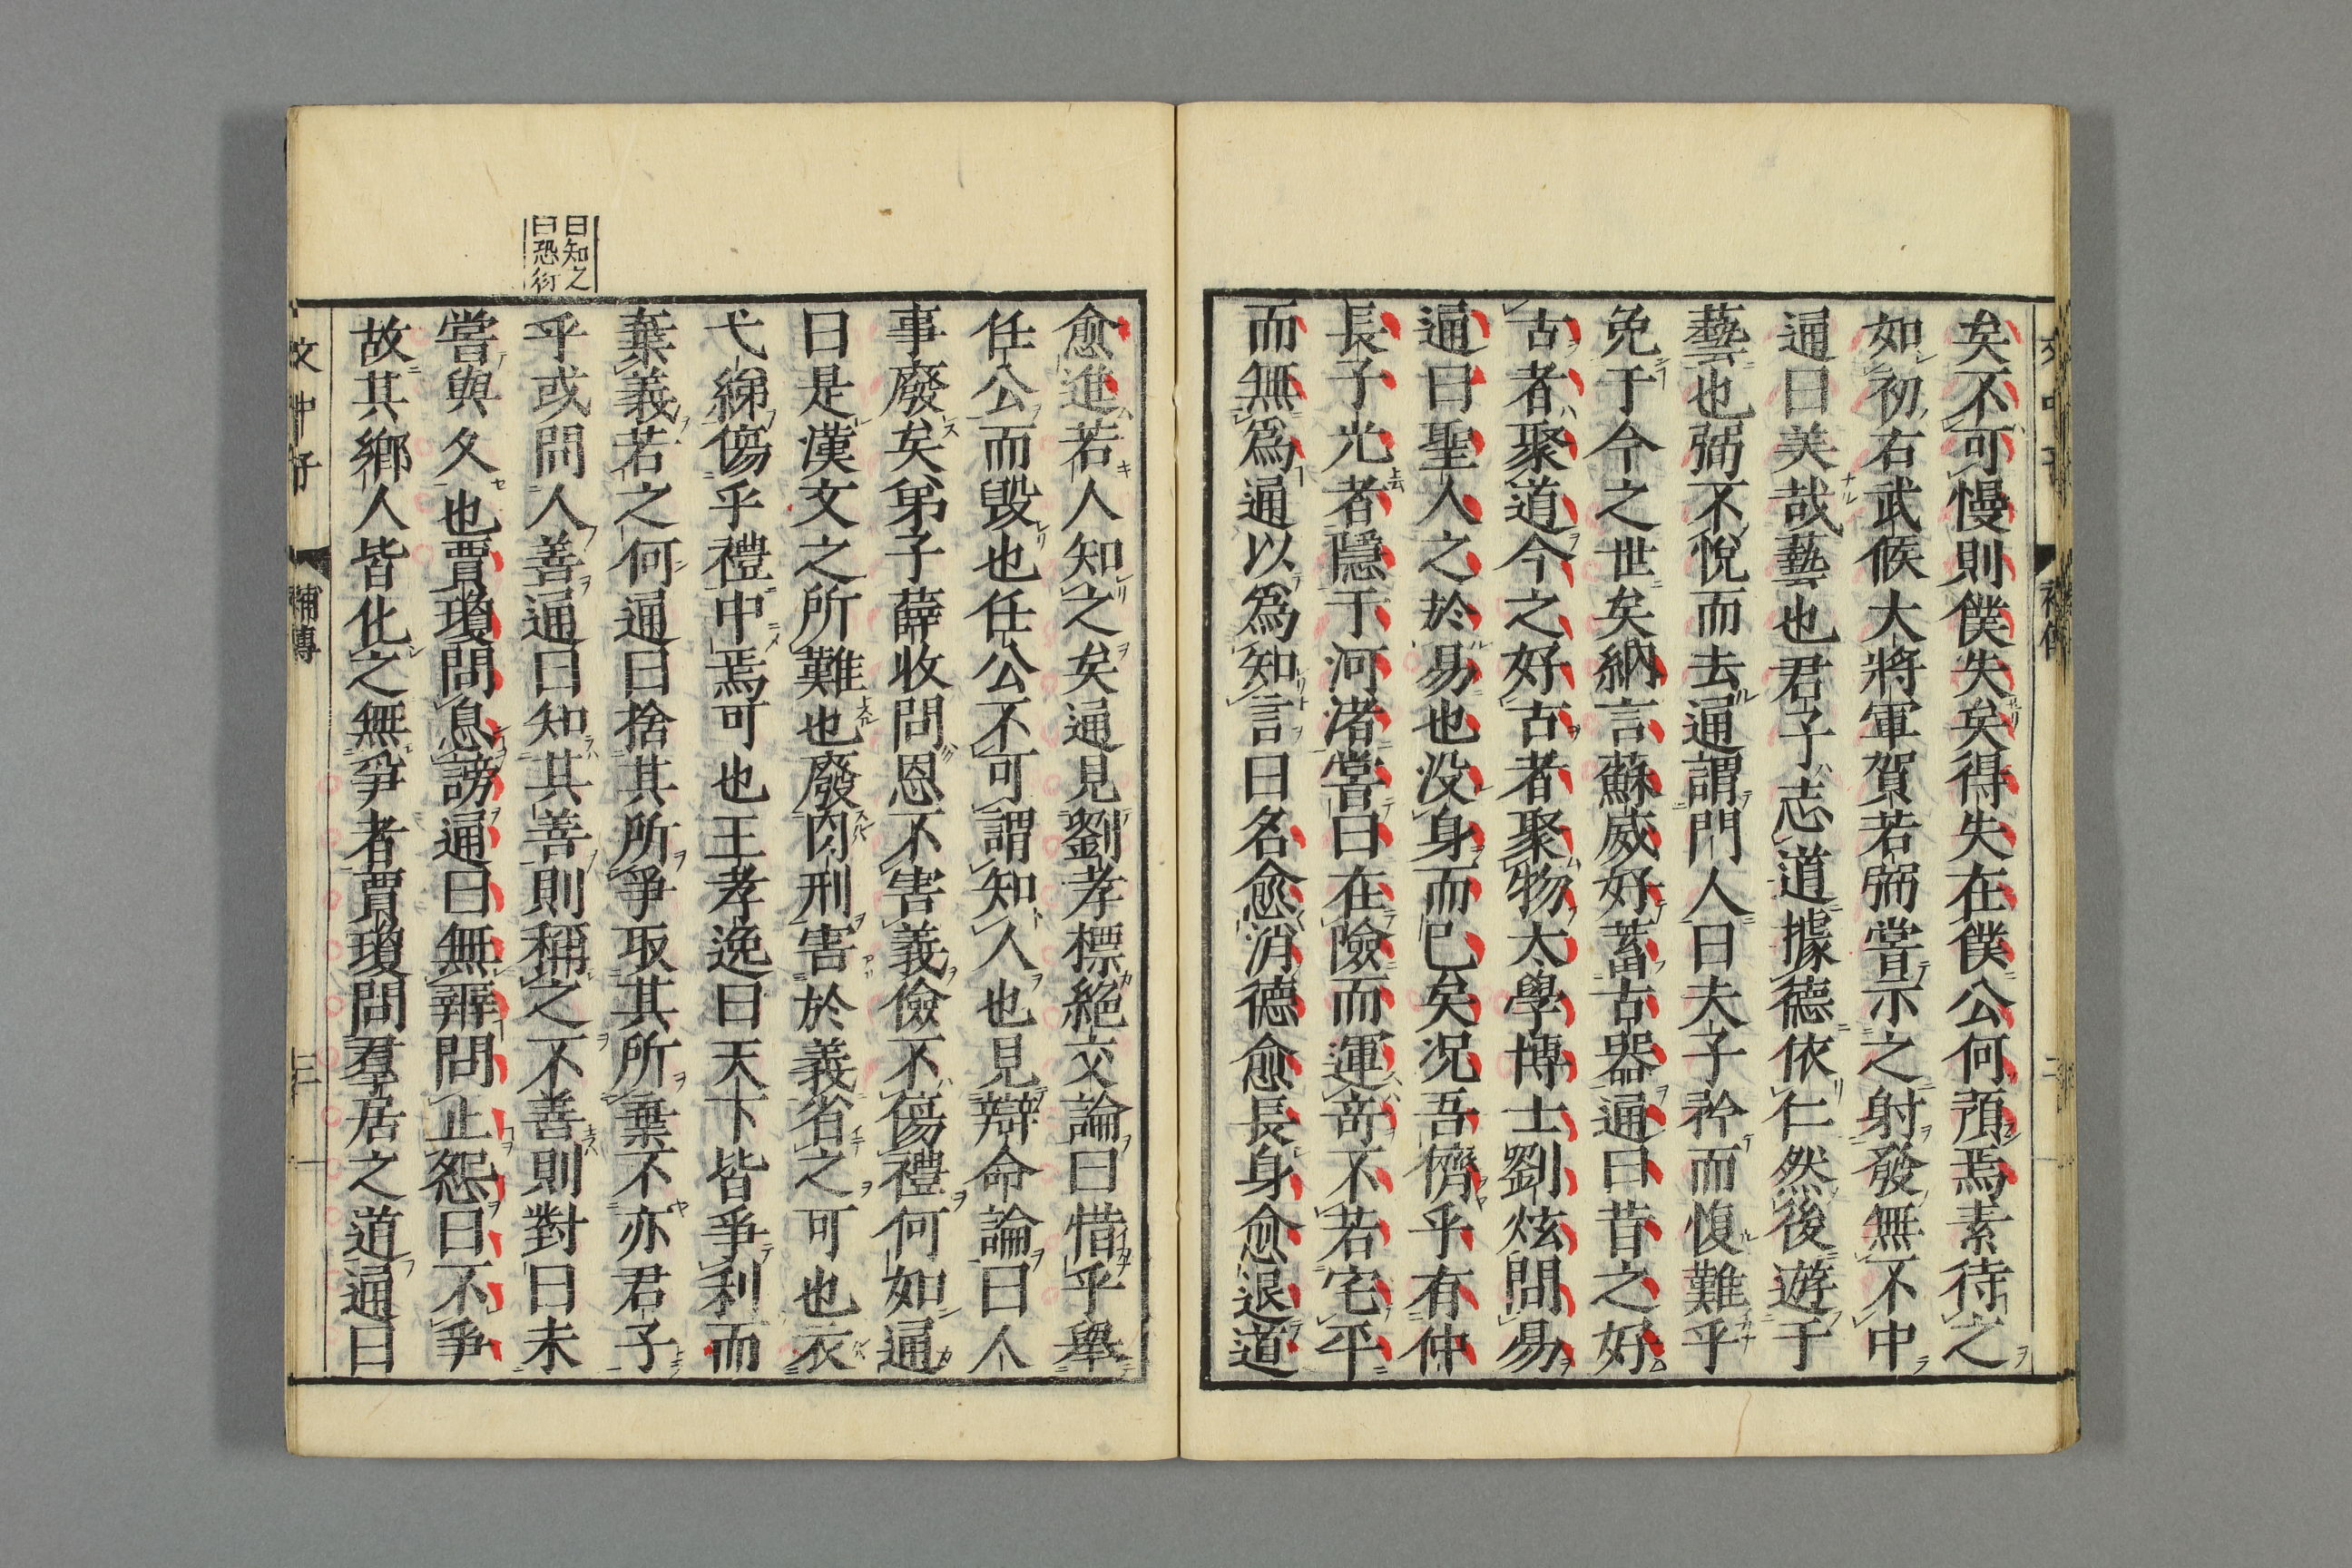 矣不可慢則僕失矣得失在僕公何預焉素待之
如初右武候大將軍賀若弼嘗示之射發無不中
通曰美哉藝也君子志道據德依仁然後遊于
藝也弼不悅而去通謂門人曰夫子矜而愎難乎
免于今之世矣納言蘇威好蓄古器通曰昔之好
古者聚道今之好古者聚物太學博士劉炫問易
通曰聖人之於易也没身而已矣况吾儕乎有仲
長子光者隱于河渚嘗曰在險而運竒不若宅平
而無爲通以爲知言曰名愈消德愈長身愈退道
愈進若人知之矣通見劉孝標絶交論曰惜乎舉
任公而毁也任公不可謂知人也見辯命論曰人
事廢矣弟子薛收問恩不害義儉不傷禮何如通
曰是漢文之所難也廢肉刑害於義省之可也衣
弋綈傷乎禮中焉可也王孝逸曰天下皆爭利而
棄義若之何通曰捨其所爭取其所棄不亦君子
乎或問人善通曰知其善則稱之不善則對曰未
嘗與久也賈瓊問息謗通曰無辨問止怨曰不爭
故其鄉人皆化之無爭者賈瓊問羣居之道通曰
曰知之
曰恐衍
文中子
補傳
二
三